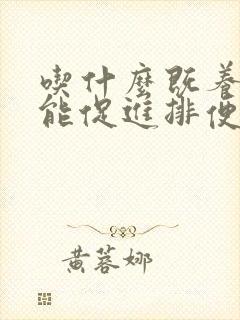 喫什麼既養
能促進排便
黃蓉娜